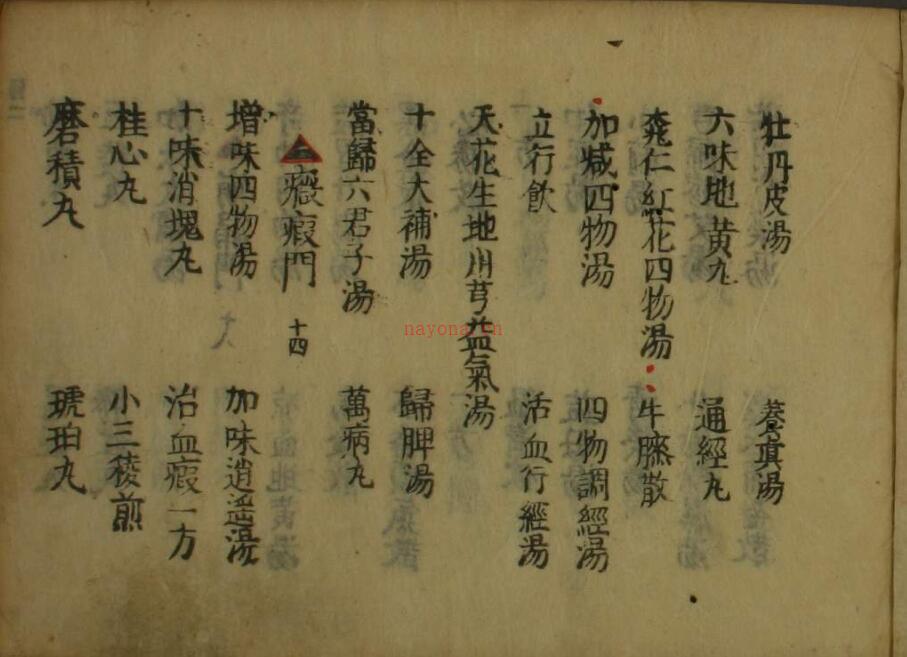 牡丹皮湯　養眞湯
六味地黄丸　通經丸
桃仁紅花四物湯　牛膝散
加减四物湯　四物調經湯
立行飲　活血行經湯
天花生地川芎益氣湯
十全大補湯　歸脾湯
當歸六君子湯　萬病丸
癥瘕門　十四
増味四物湯　加味逍遙湯
十味消塊丸　治血瘕一方
桂心丸　小三稜煎
磨積丸　琥珀丸
nayona.cn